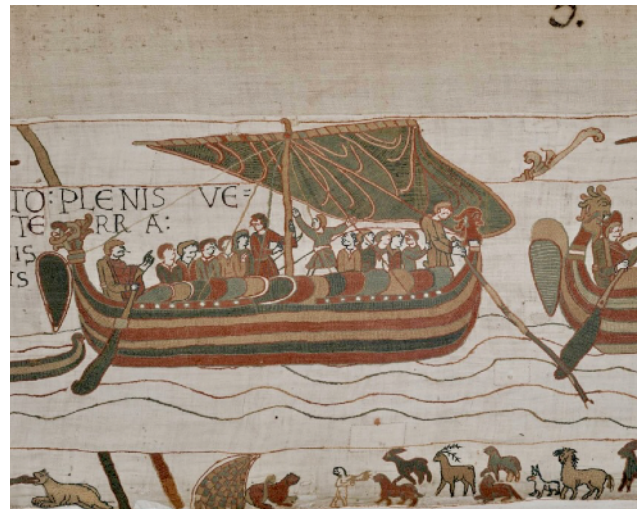 5.
TO: PLENIS VE=
TE RRA:
IS
IS